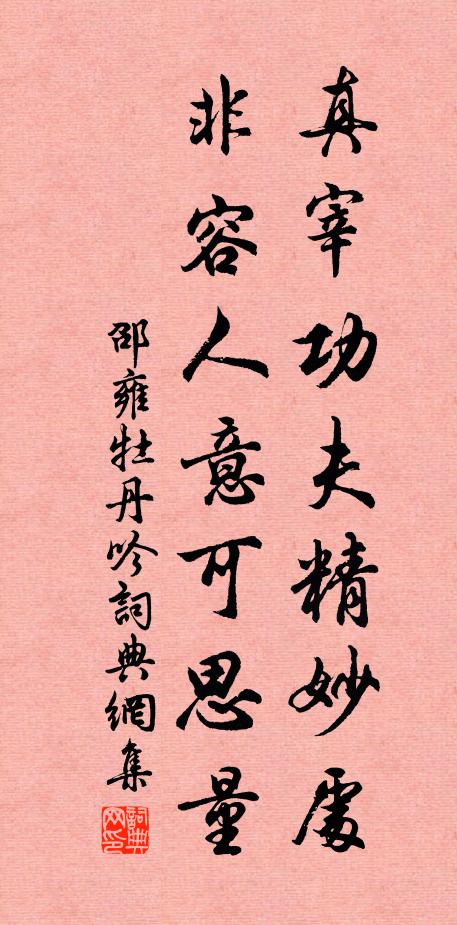 真宰功夫精妙處
非容人意可思量
邵雍牡丹吟詞典網集
詞典网印